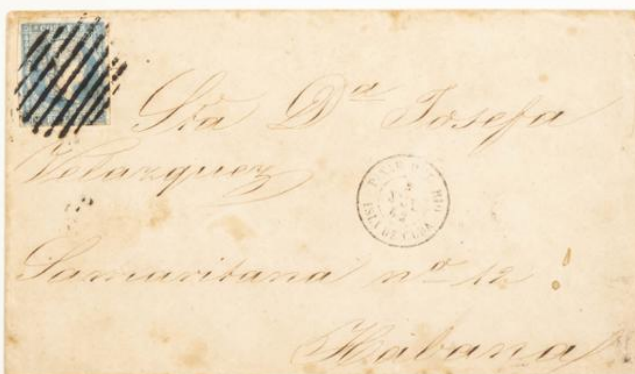 Sta Da Josefa
Velazquez
PINAR DEL RIO
ISLA DE CUBA
Samaritana no 12
Habana